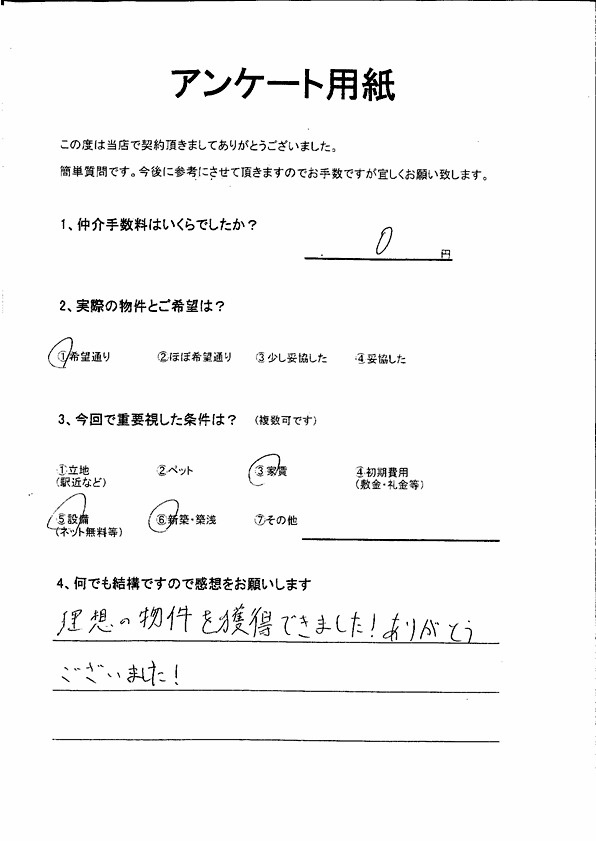 アンケート用紙
この度は当店で契約頂きましてありがとうございました。
簡単質問です。今後に参考にさせて頂きますのでお手数ですが宜しくお願い致します。
1、仲介手数料はいくらでしたか？
0 円
2、実際の物件とご希望は？
①希望通り ②ほぼ希望通り ③少し妥協した ④妥協した
3、今回で重要視した条件は？ （複数可です）
①立地 ②ペット ③家賃 ④初期費用
（駅近など） （敷金・礼金等）
⑤設備 ⑥新築・築浅 ⑦その他
（ネット無料等）
4、何でも結構ですので感想をお願いします
理想の物件を獲得できました！ありがとう
ございました！